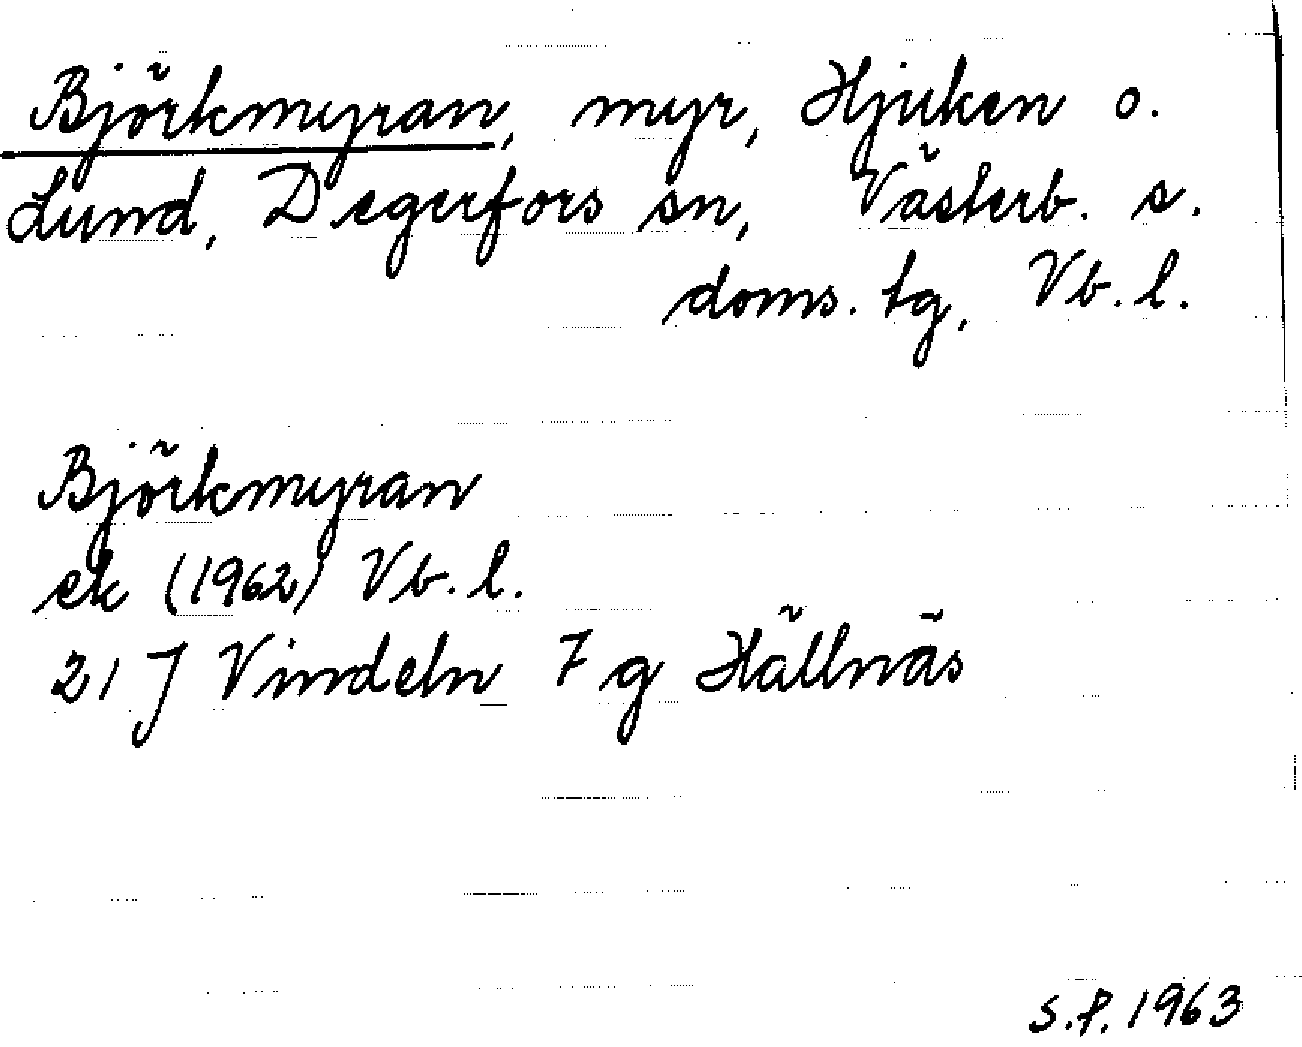 Björkmyran, myr, Hjuken o.
Lund, Degerfors sn, Västerb. s.
doms. tg, Vb. l.
Björkmyran
ek (1962) Vb. l.
21 J Vindeln 7 g Hällnäs
S.P. 1963